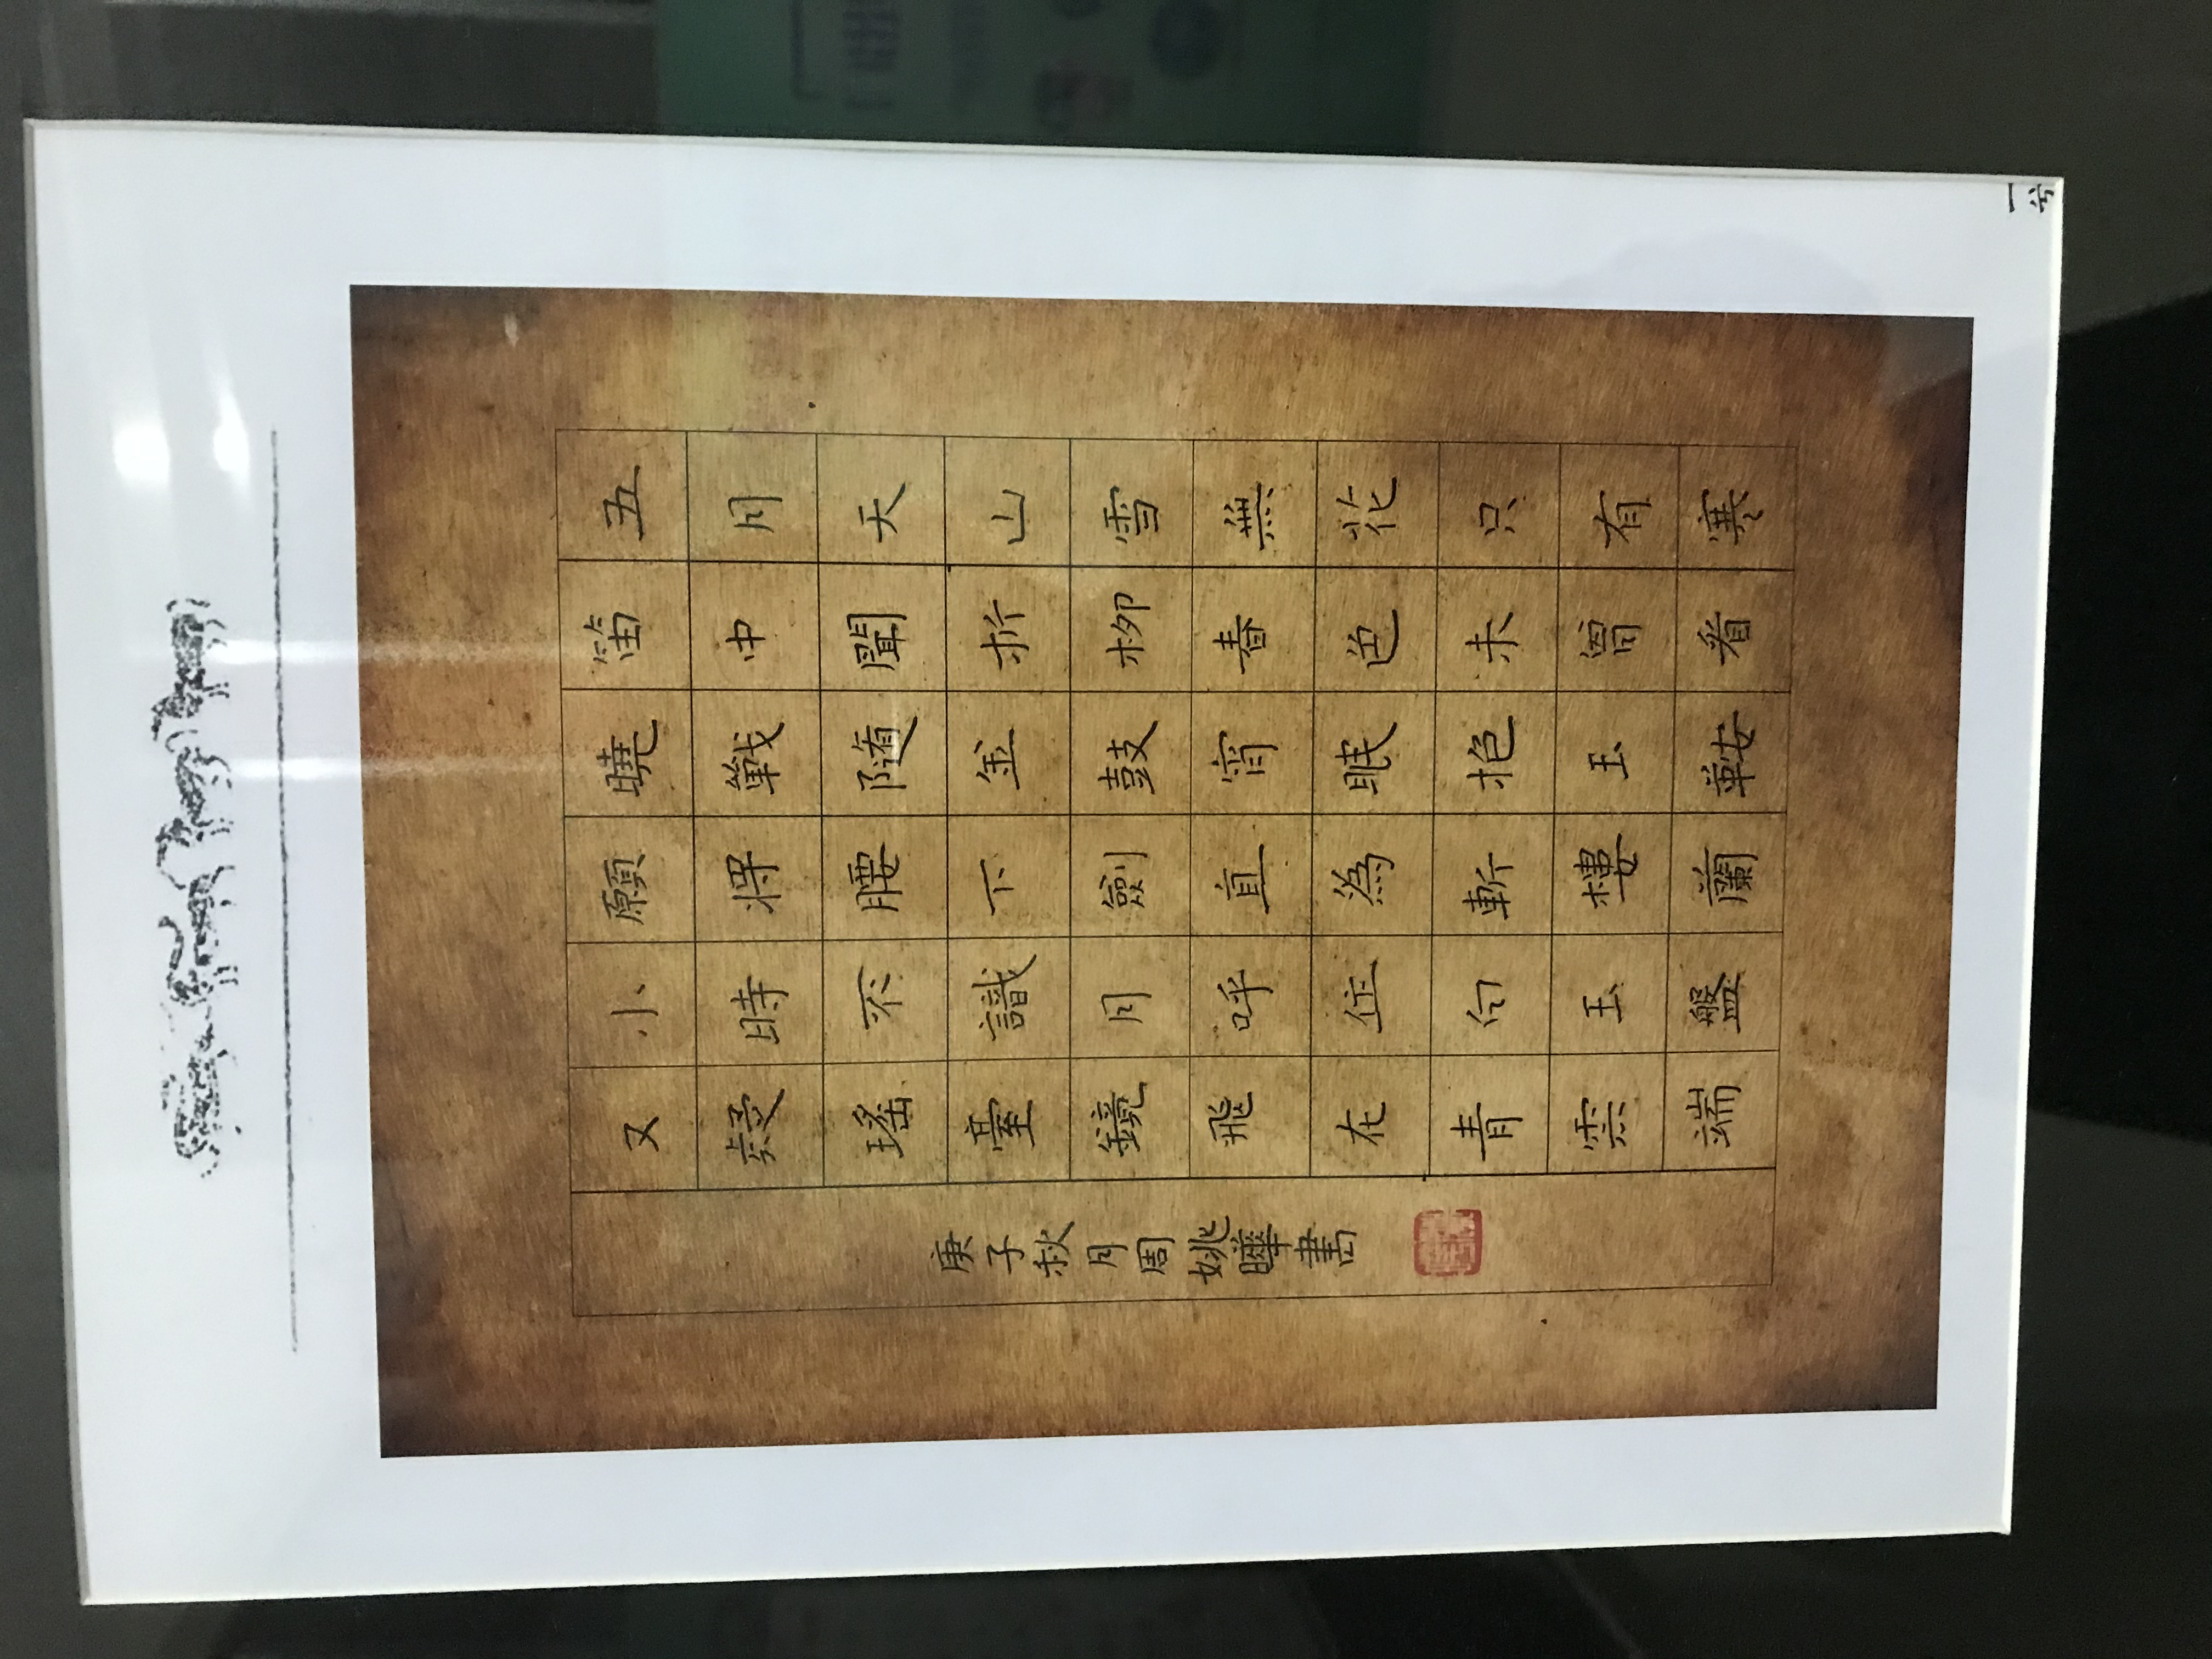 五月天山雪無花只有寒
笛中聞折栁春色未曾看
曉戰随金鼓宵眠抱玉鞍
願將腰下劍直為斬樓蘭
小時不識月呼作白玉盤
又疑瑤臺鏡飛在青雲端
庚子秋月周姚曄書